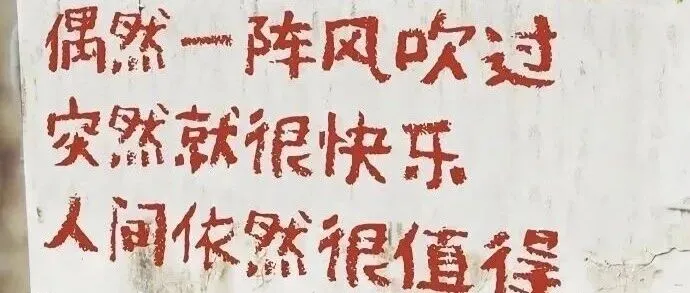 偶然一阵风吹过
突然就很快乐
人间依然很值得